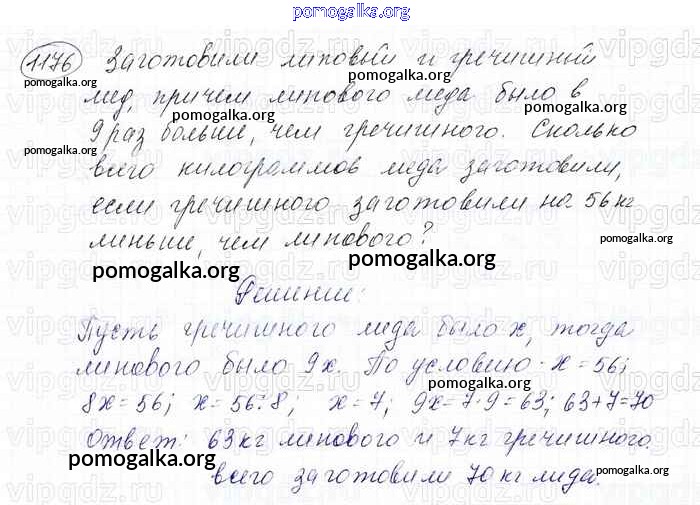 pomogalka.org
1176 Заготовили липовый и гречишний
pomogalka.org pomogalka.org
мед, причем липового меда было в
9 раз больше, чем гречишного. Сколько
pomogalka.org
всего килограммов меда заготовили,
если гречишного заготовили на 56 кг
меньше, чем липового?
pomogalka.org
pomogalka.org pomogalka.org
Решение:
Пусть гречишного меда было х, тогда
липового было 9х. По условию: х = 56;
pomogalka.org pomogalka.org
8х = 56; х = 56:8; х = 7; 9х = 7·9 = 63; 63+7=70
Ответ: 63 кг липового и 7 кг гречишного.
pomogalka.org pomogalka.org pomogalka.org
всего заготовили 70 кг меда.